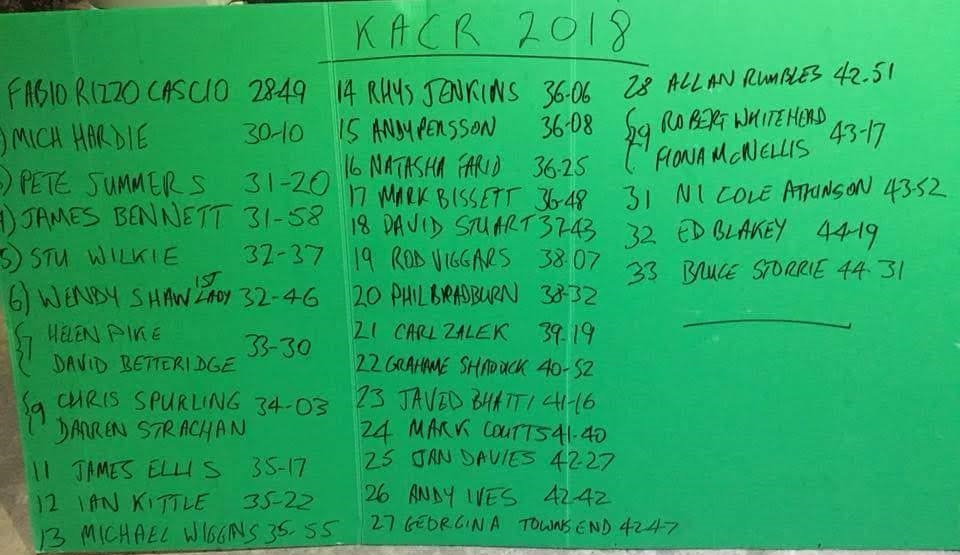 KACR 2018
FABIO RIZZO CASCIO 28-49
) MICH HARDIE 30-10
3) PETE SUMMERS 31-20
4) JAMES BENNETT 31-58
5) STU WILKIE 32-37
6) WENDY SHAW 1ST LADY 32-46
{7 HELEN PIKE
DAVID BETTERIDGE 33-30
{9 CHRIS SPURLING 34-03
DARREN STRACHAN
11 JAMES ELLIS 35-17
12 IAN KITTLE 35-22
13 MICHAEL WIGGINS 35-55
14 RHYS JENKINS 36-06
15 ANDY PERSSON 36-08
16 NATASHA FARID 36-25
17 MARK BISSETT 36-48
18 DAVID STUART 37-43
19 ROD VIGGARS 38-07
20 PHIL BRADBURN 38-32
21 CARL ZALEK 39-19
22 GRAHAME SHADDICK 40-52
23 JAVED BHATTI 41-16
24 MARK COUTTS 41-40
25 JAN DAVIES 42-27
26 ANDY IVES 42-42
27 GEORGINA TOWNSEND 42-47
28 ALLAN RUMBLES 42-51
{29 ROBERT WHITEHEAD
FIONA MCNELLIS 43-17
31 NICOLE ATKINSON 43-52
32 ED BLAKEY 44-19
33 BRUCE STORRIE 44-31